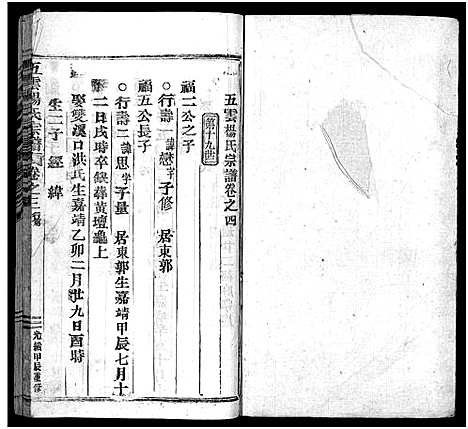 五雲楊氏宗譜卷之四
第十九世
福二公之子
○行壽一諱懋字子修 居東郭
福五公長子
○行壽二諱思字子量 居東郭生嘉靖甲辰七月十
二日戌時卒葬黃壇龜上
娶雙溪口洪氏生嘉靖乙卯二月廿九日酉時
生二子 經 緯
五雲楊氏宗譜 卷之三
光緒甲辰重修